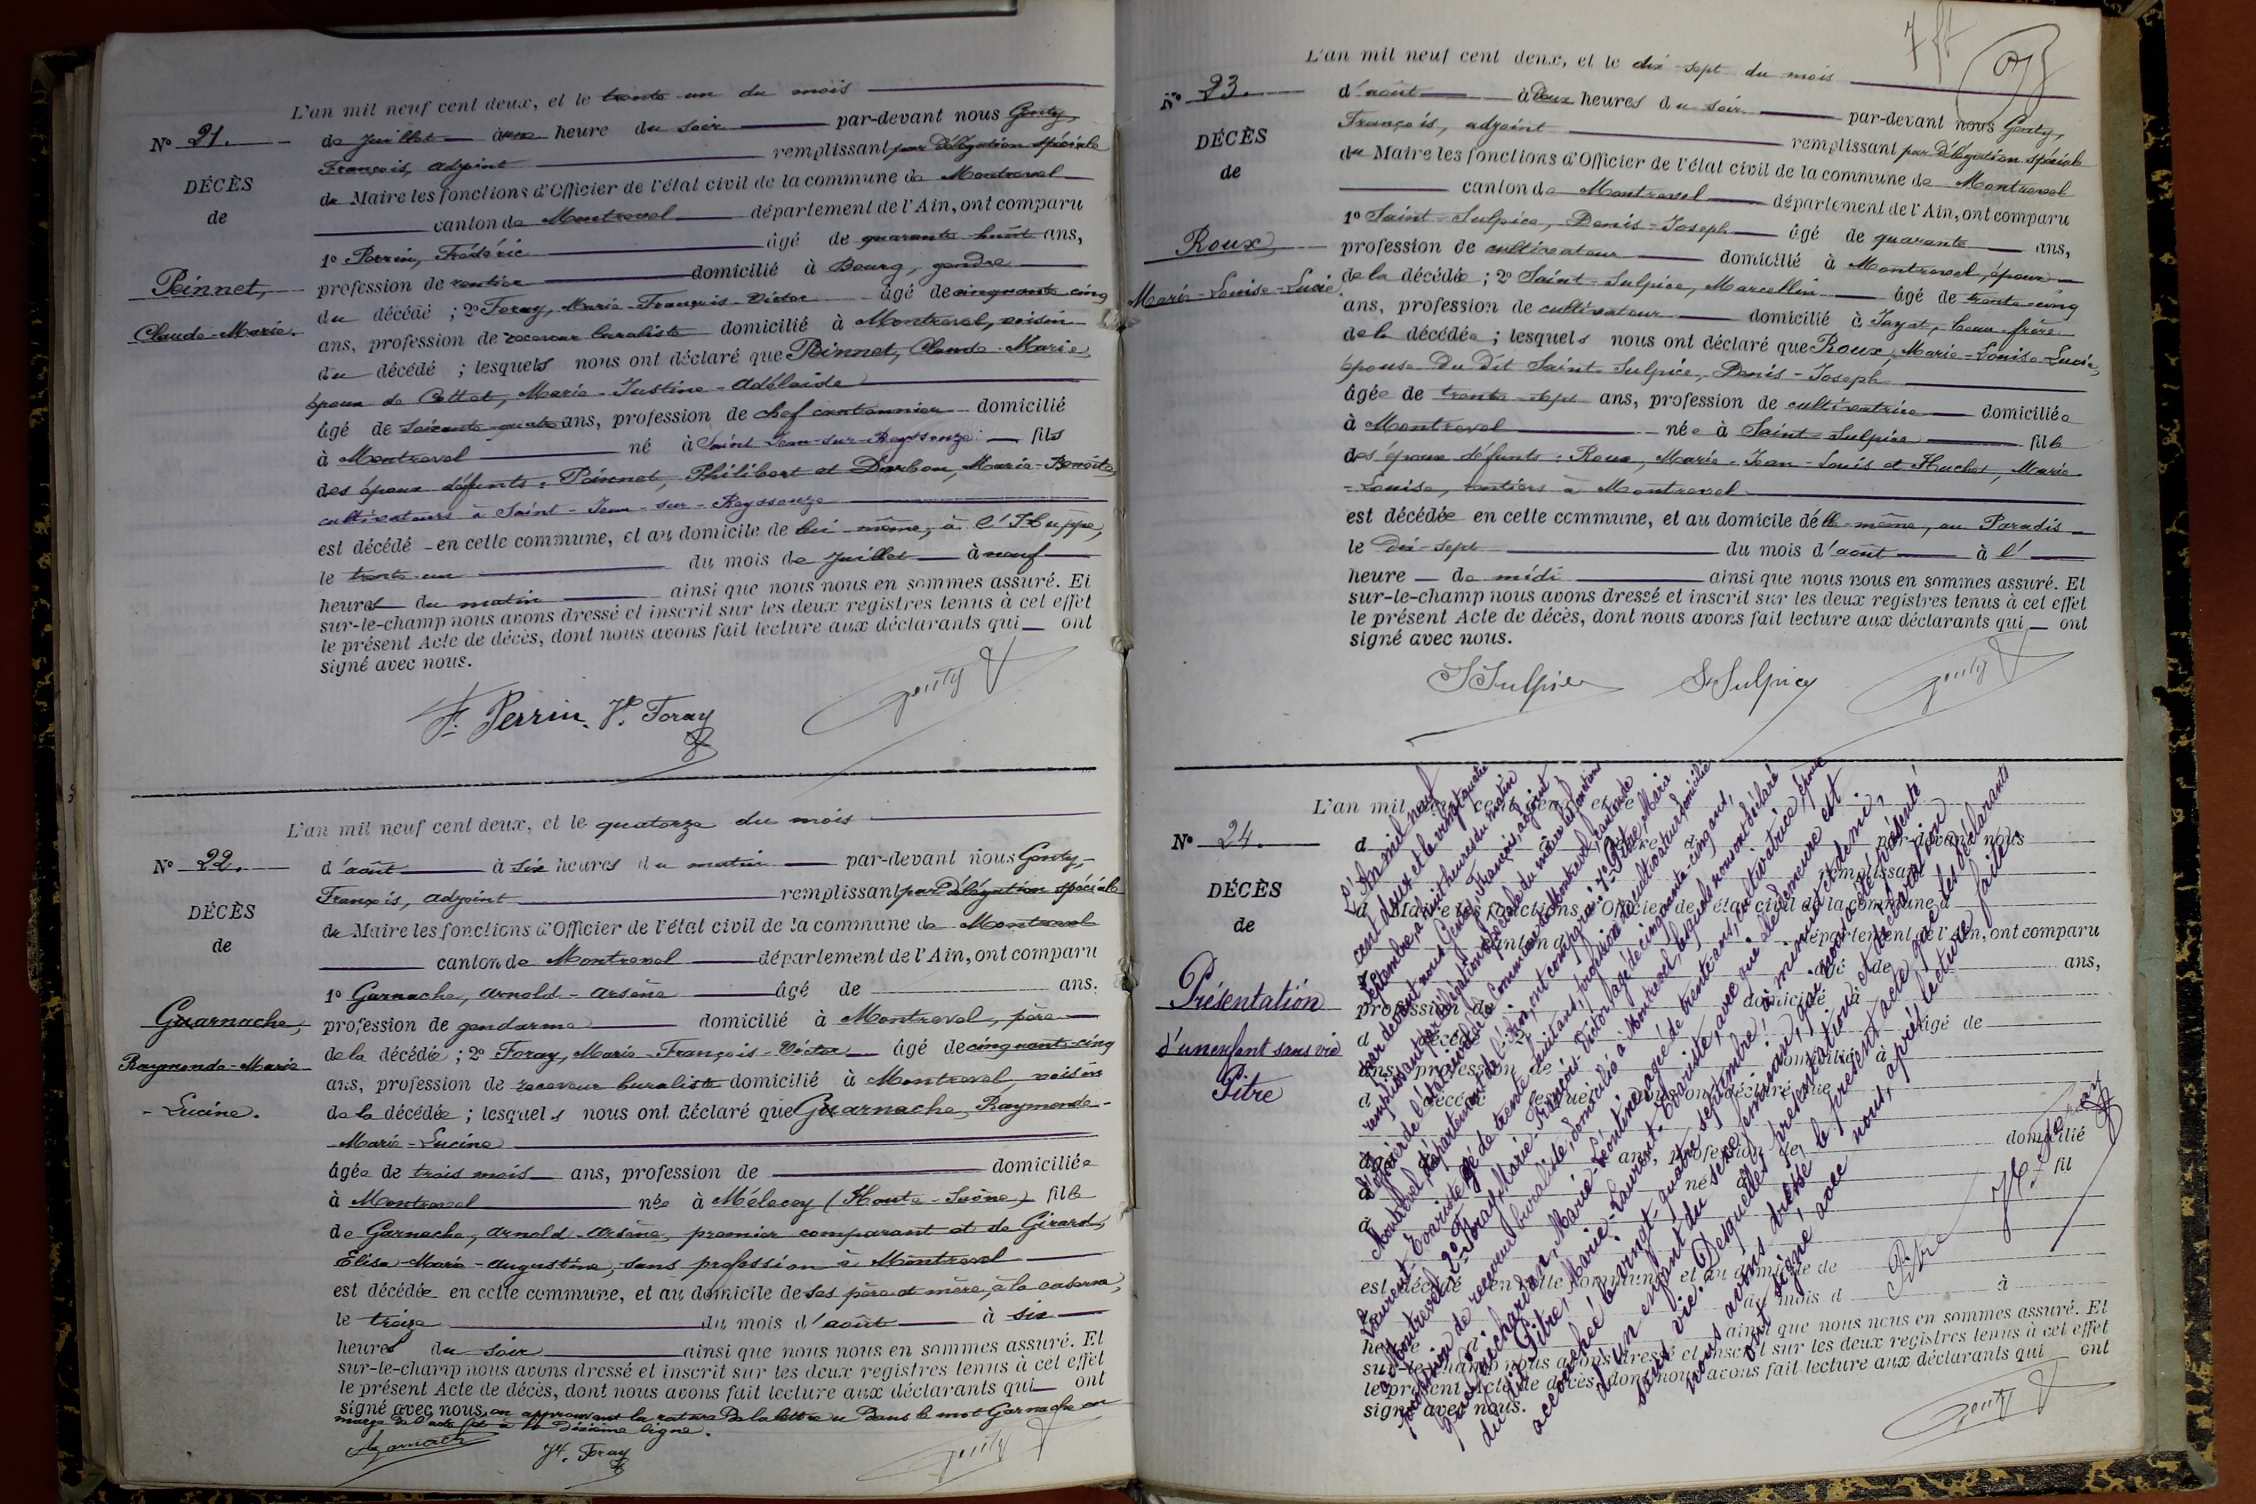 L'an mil neuf cent deux, et le trente-un du mois
N° 21.
de Juillet à une heure du soir par-devant nous Gouty,
François, adjoint remplissant par délégation spéciale
DÉCÈS
du Maire les fonctions d'Officier de l'état civil de la commune de Montrevel
de
canton de Montrevel département de l'Ain, ont comparu
1° Perrin, Frédéric âgé de quarante-huit ans,
Poinnet,
profession de rentier domicilié à Bourg, gendre
du décédé ; 2° Foray, Marie-François-Victor âgé de cinquante-cinq
Claude-Marie.
ans, profession de receveur buraliste domicilié à Montrevel, voisin
du décédé ; lesquels nous ont déclaré que Poinnet, Claude-Marie,
époux de Cottet, Marie-Justine-Adélaïde
âgé de soixante-quatre ans, profession de chef cantonnier domicilié
à Montrevel né à Saint-Jean-sur-Reyssouze fils
des époux défunts : Poinnet, Philibert et Darbon, Marie-Benoîte,
cultivateurs à Saint-Jean-sur-Reyssouze
est décédé en cette commune, et au domicile de lui-même, à l'Huppe,
le trente-un du mois de Juillet à neuf
heures du matin ainsi que nous nous en sommes assuré. Et
sur-le-champ nous avons dressé et inscrit sur les deux registres tenus à cet effet
le présent Acte de décès, dont nous avons fait lecture aux déclarants qui ont
signé avec nous.
F. Perrin. Vr. Foray Gouty
L'an mil neuf cent deux, et le quatorze du mois
N° 22.
d'août à six heures du matin par-devant nous Gouty,
François, adjoint remplissant par délégation spéciale
DÉCÈS
du Maire les fonctions d'Officier de l'état civil de la commune de Montrevel
de
canton de Montrevel département de l'Ain, ont comparu
1° Garnache, Arnold-Arsène âgé de ans.
Guarnache,
profession de gendarme domicilié à Montrevel, père
de la décédée ; 2° Foray, Marie-François-Victor âgé de cinquante-cinq
Raymonde-Marie
ans, profession de receveur buraliste domicilié à Montrevel, voisin
-Lucine.
de la décédée ; lesquels nous ont déclaré que Guarnache, Raymonde-
Marie-Lucine
âgée de trois mois ans, profession de domiciliée
à Montrevel née à Mélecey (Haute-Saône) fille
de Garnache, Arnold-Arsène, premier comparant et de Girard,
Elisa-Marie-Augustine, sans profession à Montrevel
est décédée en cette commune, et au domicile de ses père et mère, à la caserne,
le treize du mois d'août à six
heures du soir ainsi que nous nous en sommes assuré. Et
sur-le-champ nous avons dressé et inscrit sur les deux registres tenus à cet effet
le présent Acte de décès, dont nous avons fait lecture aux déclarants qui ont
signé avec nous, en approuvant la rature de la lettre u dans le mot Garnache en
marge de l'acte et à la dixième ligne.
Garnache Vr. Foray Gouty
7 ft
L'an mil neuf cent deux, et le dix-sept du mois
N° 23.
d'août à deux heures du soir par-devant nous Gouty,
François, adjoint remplissant par délégation spéciale
DÉCÈS
du Maire les fonctions d'Officier de l'état civil de la commune de Montrevel
de
canton de Montrevel département de l'Ain, ont comparu
1° Saint-Sulpice, Denis-Joseph âgé de quarante ans,
Roux,
profession de cultivateur domicilié à Montrevel, époux
Marie-Louise-Lucie.
de la décédée ; 2° Saint-Sulpice, Marcellin âgé de trente-cinq
ans, profession de cultivateur domicilié à Jayat, beau-frère
de la décédée ; lesquels nous ont déclaré que Roux, Marie-Louise-Lucie,
épouse du dit Saint-Sulpice, Denis-Joseph
âgée de trente-sept ans, profession de cultivatrice domiciliée
à Montrevel née à Saint-Sulpice fille
des époux défunts : Roux, Marie-Jean-Louis et Huchet, Marie
-Louise, rentiers à Montrevel
est décédée en cette commune, et au domicile d'elle-même, au Paradis
le dix-sept du mois d'août à l'
heure de midi ainsi que nous nous en sommes assuré. Et
sur-le-champ nous avons dressé et inscrit sur les deux registres tenus à cet effet
le présent Acte de décès, dont nous avons fait lecture aux déclarants qui ont
signé avec nous.
S Sulpice St Sulpice Gouty
N° 24.
DÉCÈS
de
Présentation
d'un enfant sans vie
Pitre
L'An mil neuf
cent deux et le vingt-quatre
septembre, à huit heures du matin
par-devant nous Gouty, François, adjoint
remplissant par délégation spéciale du maire les fonctions
d'officier de l'état civil de la commune de Montrevel, canton de
Montrevel, département de l'Ain, ont comparu : 1° Pitre, Marie
Laurent-Evariste, âgé de trente-huit ans, profession de cultivateur, domicilié
à Montrevel ; 2° Foray, Marie-François-Victor, âgé de cinquante-cinq ans,
profession de receveur buraliste, domicilié à Montrevel, lesquels nous ont déclaré
que Michardon, Marie-Léontine, âgée de trente ans, cultivatrice, épouse
du dit Pitre, Marie-Laurent-Evariste, avec qui elle demeure est
accouchée le vingt-quatre septembre, à minuit et demi,
d'un enfant du sexe féminin, qui nous a été présenté
sans vie. Desquelles présentation et déclaration
nous avons dressé le présent acte que les déclarants
ont signé avec nous, après lecture faite.
L'an mil neuf cent deux, et le
d à heure d par-devant nous
remplissant
d Maire les fonctions d'Officier de l'état civil de la commune d
canton d département de l'Ain, ont comparu
1° âgé de ans,
profession de domicilié à
d décédé ; 2° âgé de
ans, profession de domicilié à
d décédé ; lesquels nous ont déclaré que
âgé de ans, profession de domicilié
à né à fil
est décédé en cette commune, et au domicile de
le du mois d à
heure d ainsi que nous nous en sommes assuré. Et
sur-le-champ nous avons dressé et inscrit sur les deux registres tenus à cet effet
le présent Acte de décès, dont nous avons fait lecture aux déclarants qui ont
signé avec nous.
Pitre Vr. Foray Gouty